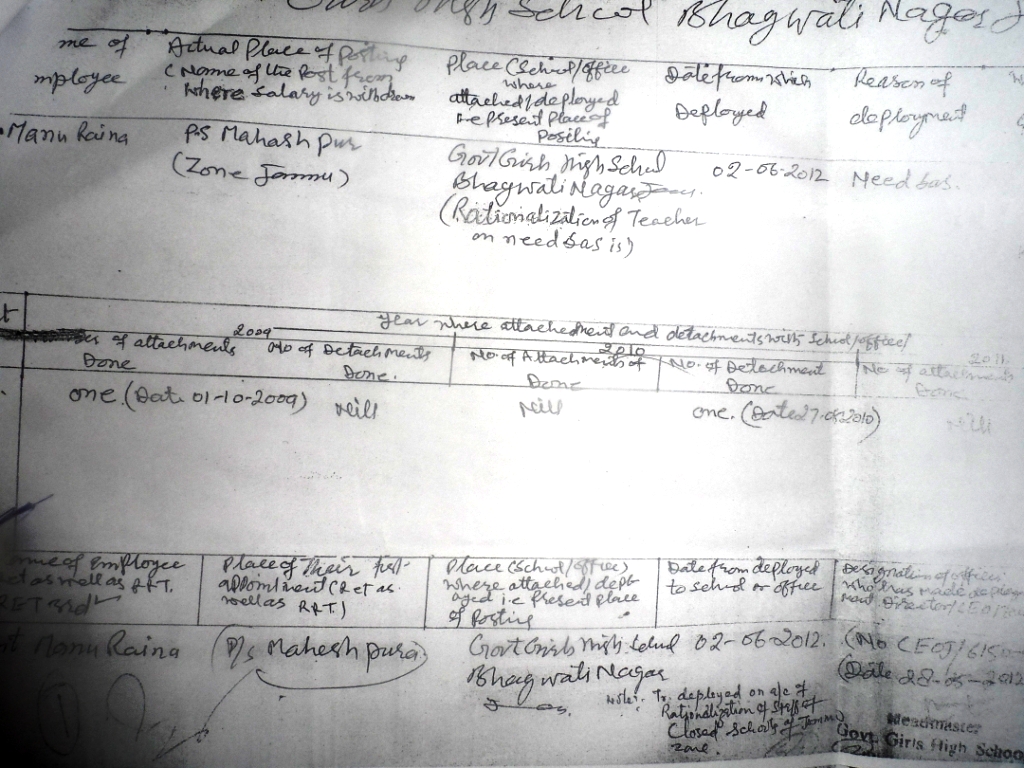 High School Bhagwati Nagar J
me of
mployee
Actual Place of Posting
(Name of the Post from
where salary is withdrawn
Place (School/office
where
attached/deployed
i-e present place of
Posting
Date from which
Deployed
Reason of
deployment
Manu Raina
P.S Mahash pur
(Zone Jammu)
Govt Girls High School
Bhagwati Nagar
(Rationalization of Teacher
on need basis)
02-06-2012
Need bas.
Year where attachedment and detachments with School/office/
2009
2010
2011
of attachments
Done
No of Detachments
Done.
No. of Attachments of
Done
No. of Detachment
Done
No of attachments
Done
one. (Date 01-10-2009)
Nill
Nill
one. (Date 27.08.2010)
Nill
me of Employee
et as well as RRT.
Place of Their first
appointment (Ret as
well as RRT)
Place (School/office)
where attached/depl
oyed i.e Present place
of Posting
Date from deployed
to school or office
Designation of officer
who has made deploy
ment Director/CEO/
Manu Raina
P/s Mahesh pura
Govt Girls High School
Bhagwati Nagar
02-06-2012.
(No CEOJ/6150
(Date 28-05-2012
Note:- Tr. deployed on a/c of
Rationalization of Staff of
Closed Schools of Jammu
Zone.
1
Headmaster
Govt Girls High School